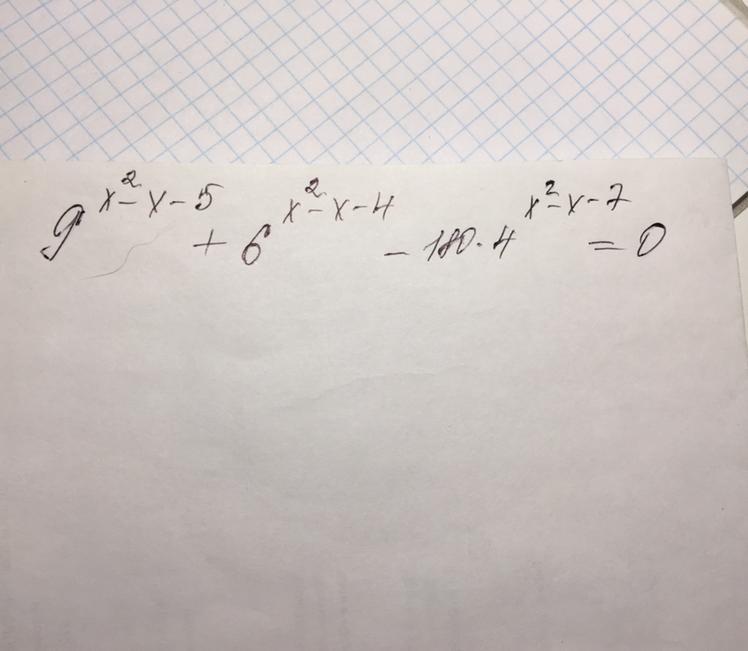 9^{x^2-x-5} + 6^{x^2-x-4} - 180·4^{x^2-x-7} = 0